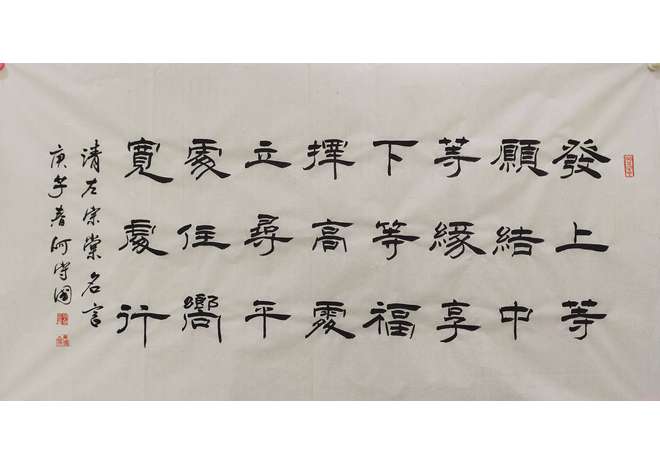 發上等
願結中
等緣享
下等福
擇高處
立尋平
處住嚮
寬處行
清左宗棠名言
庚子春何守國